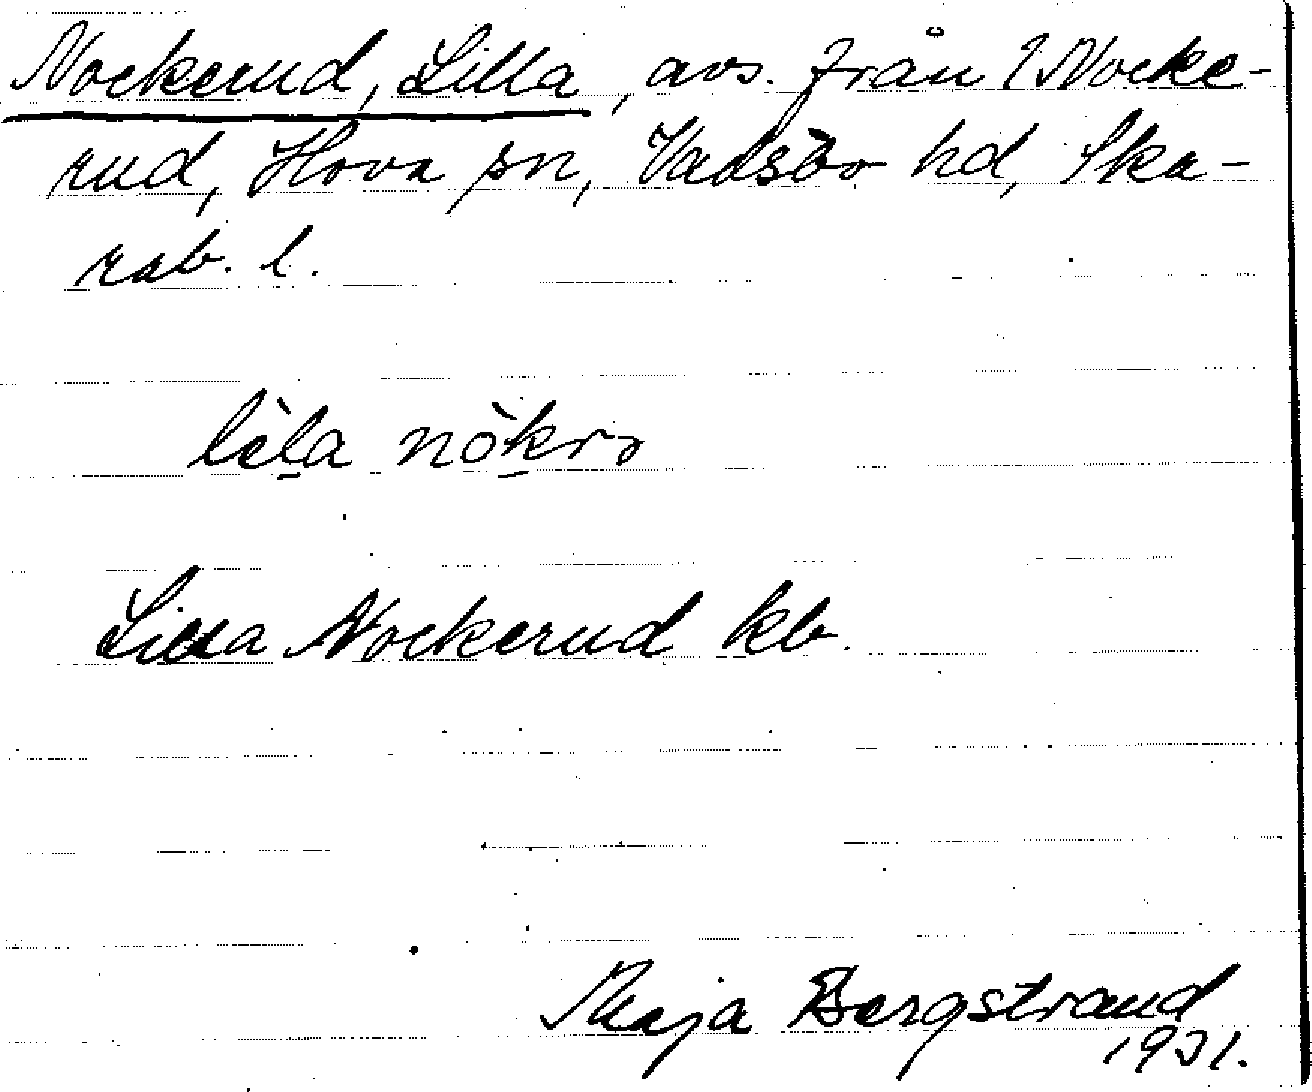 Nockerud, Lilla, avs. från 2 Nocke-
rud, Hova sn, Vadsbo hd, Ska-
rab. l.
lèla nòkrɷ
Lilla Nockerud kb.
Maja Bergstrand
1931.